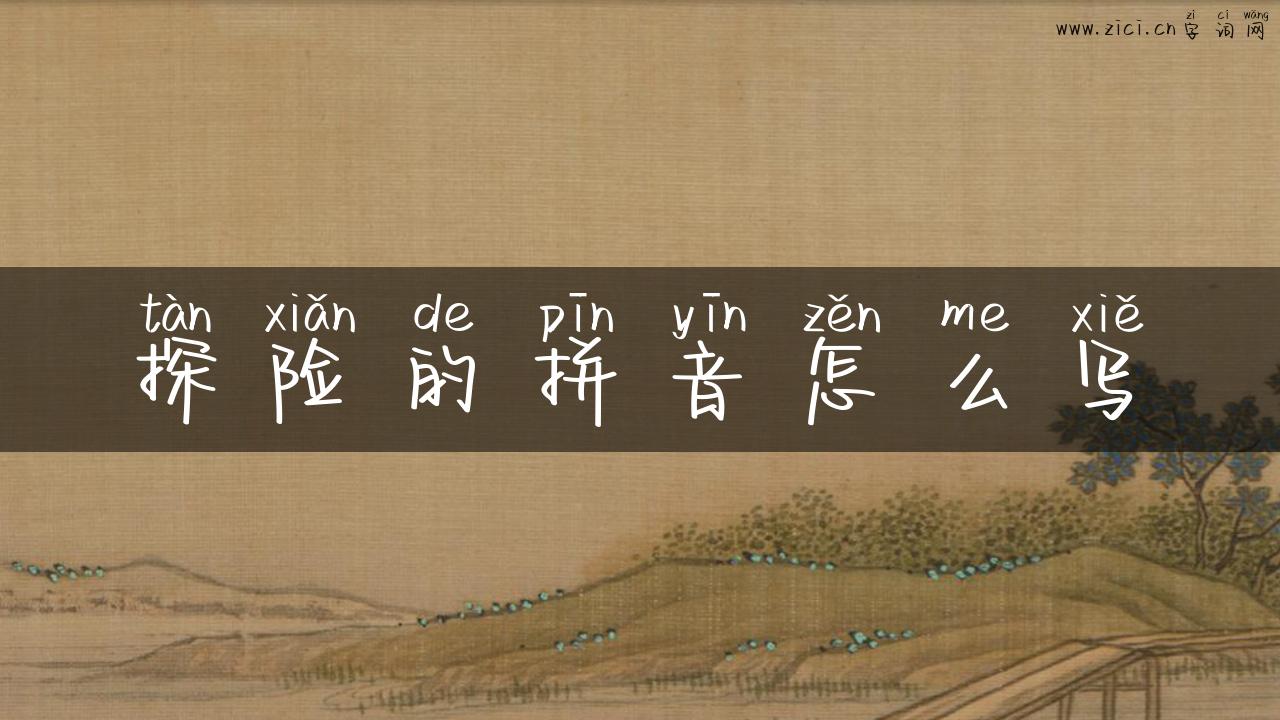 zì cí wǎng
www.zici.cn字词网
tàn xiǎn de pīn yīn zěn me xiě
探险的拼音怎么写